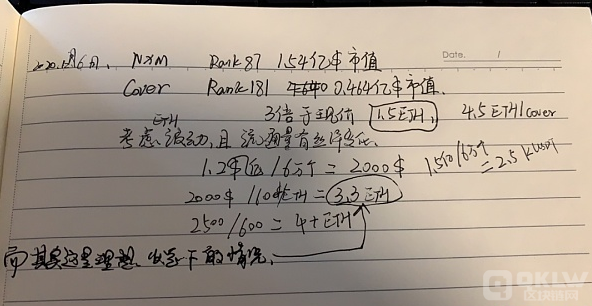 Date. /
2020.12月6日. NXM Rank 87 1.54亿$市值
Cover Rank 181 0.464亿$市值.
3倍于现价 1.5ETH, 4.5ETH/Cover
ETH
考虑波动,且流通量有些许变化.
1.2$亿/6万个 = 2000$ 1.5亿/6万个
= 2.5k USDT
2000$ / = 3.3ETH
2500/600 = 4+ETH
而其实这是理想状态下的情况.
区块链网